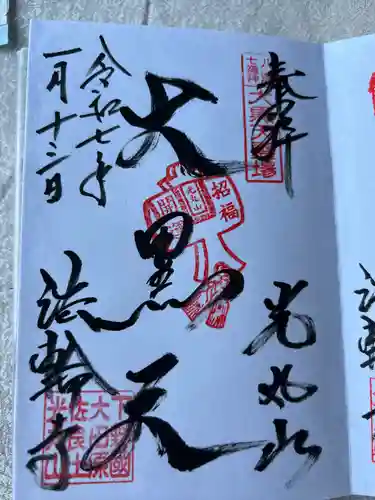 奉拝
光丸山
大黒天
招福
開運
光丸山
令和七年
一月十三日
法輪寺
下野國
大田原
佐良土